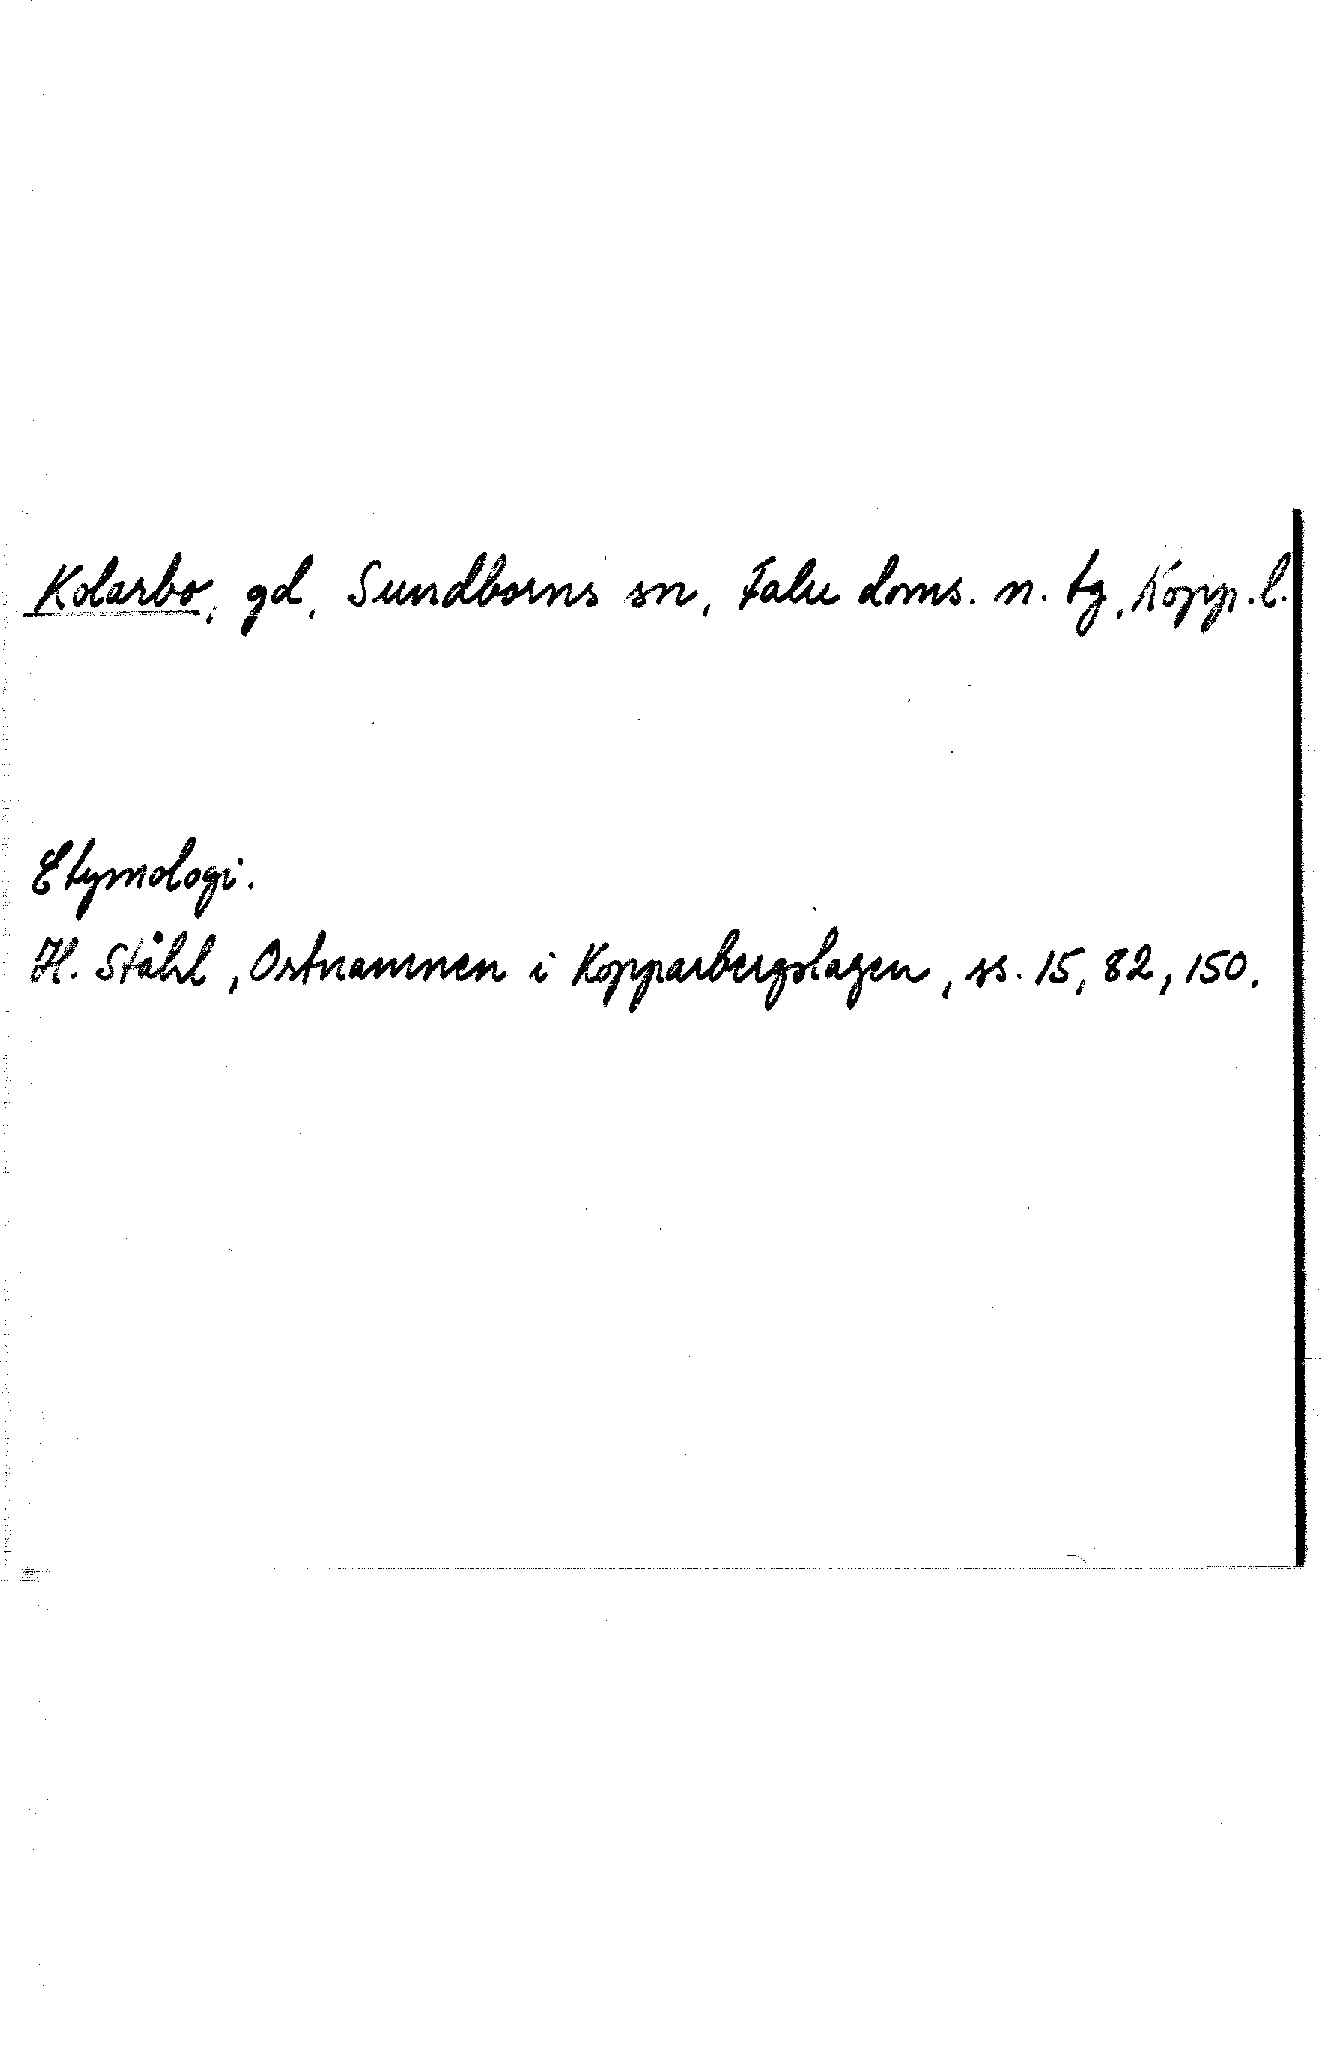 Kolarbo, gd, Sundborns sn, Falu doms. n. tg, Kopp. l.
Etymologi.
H. Ståhl, Ortnamnen i Kopparbergslagen, ss. 15, 82, 150.